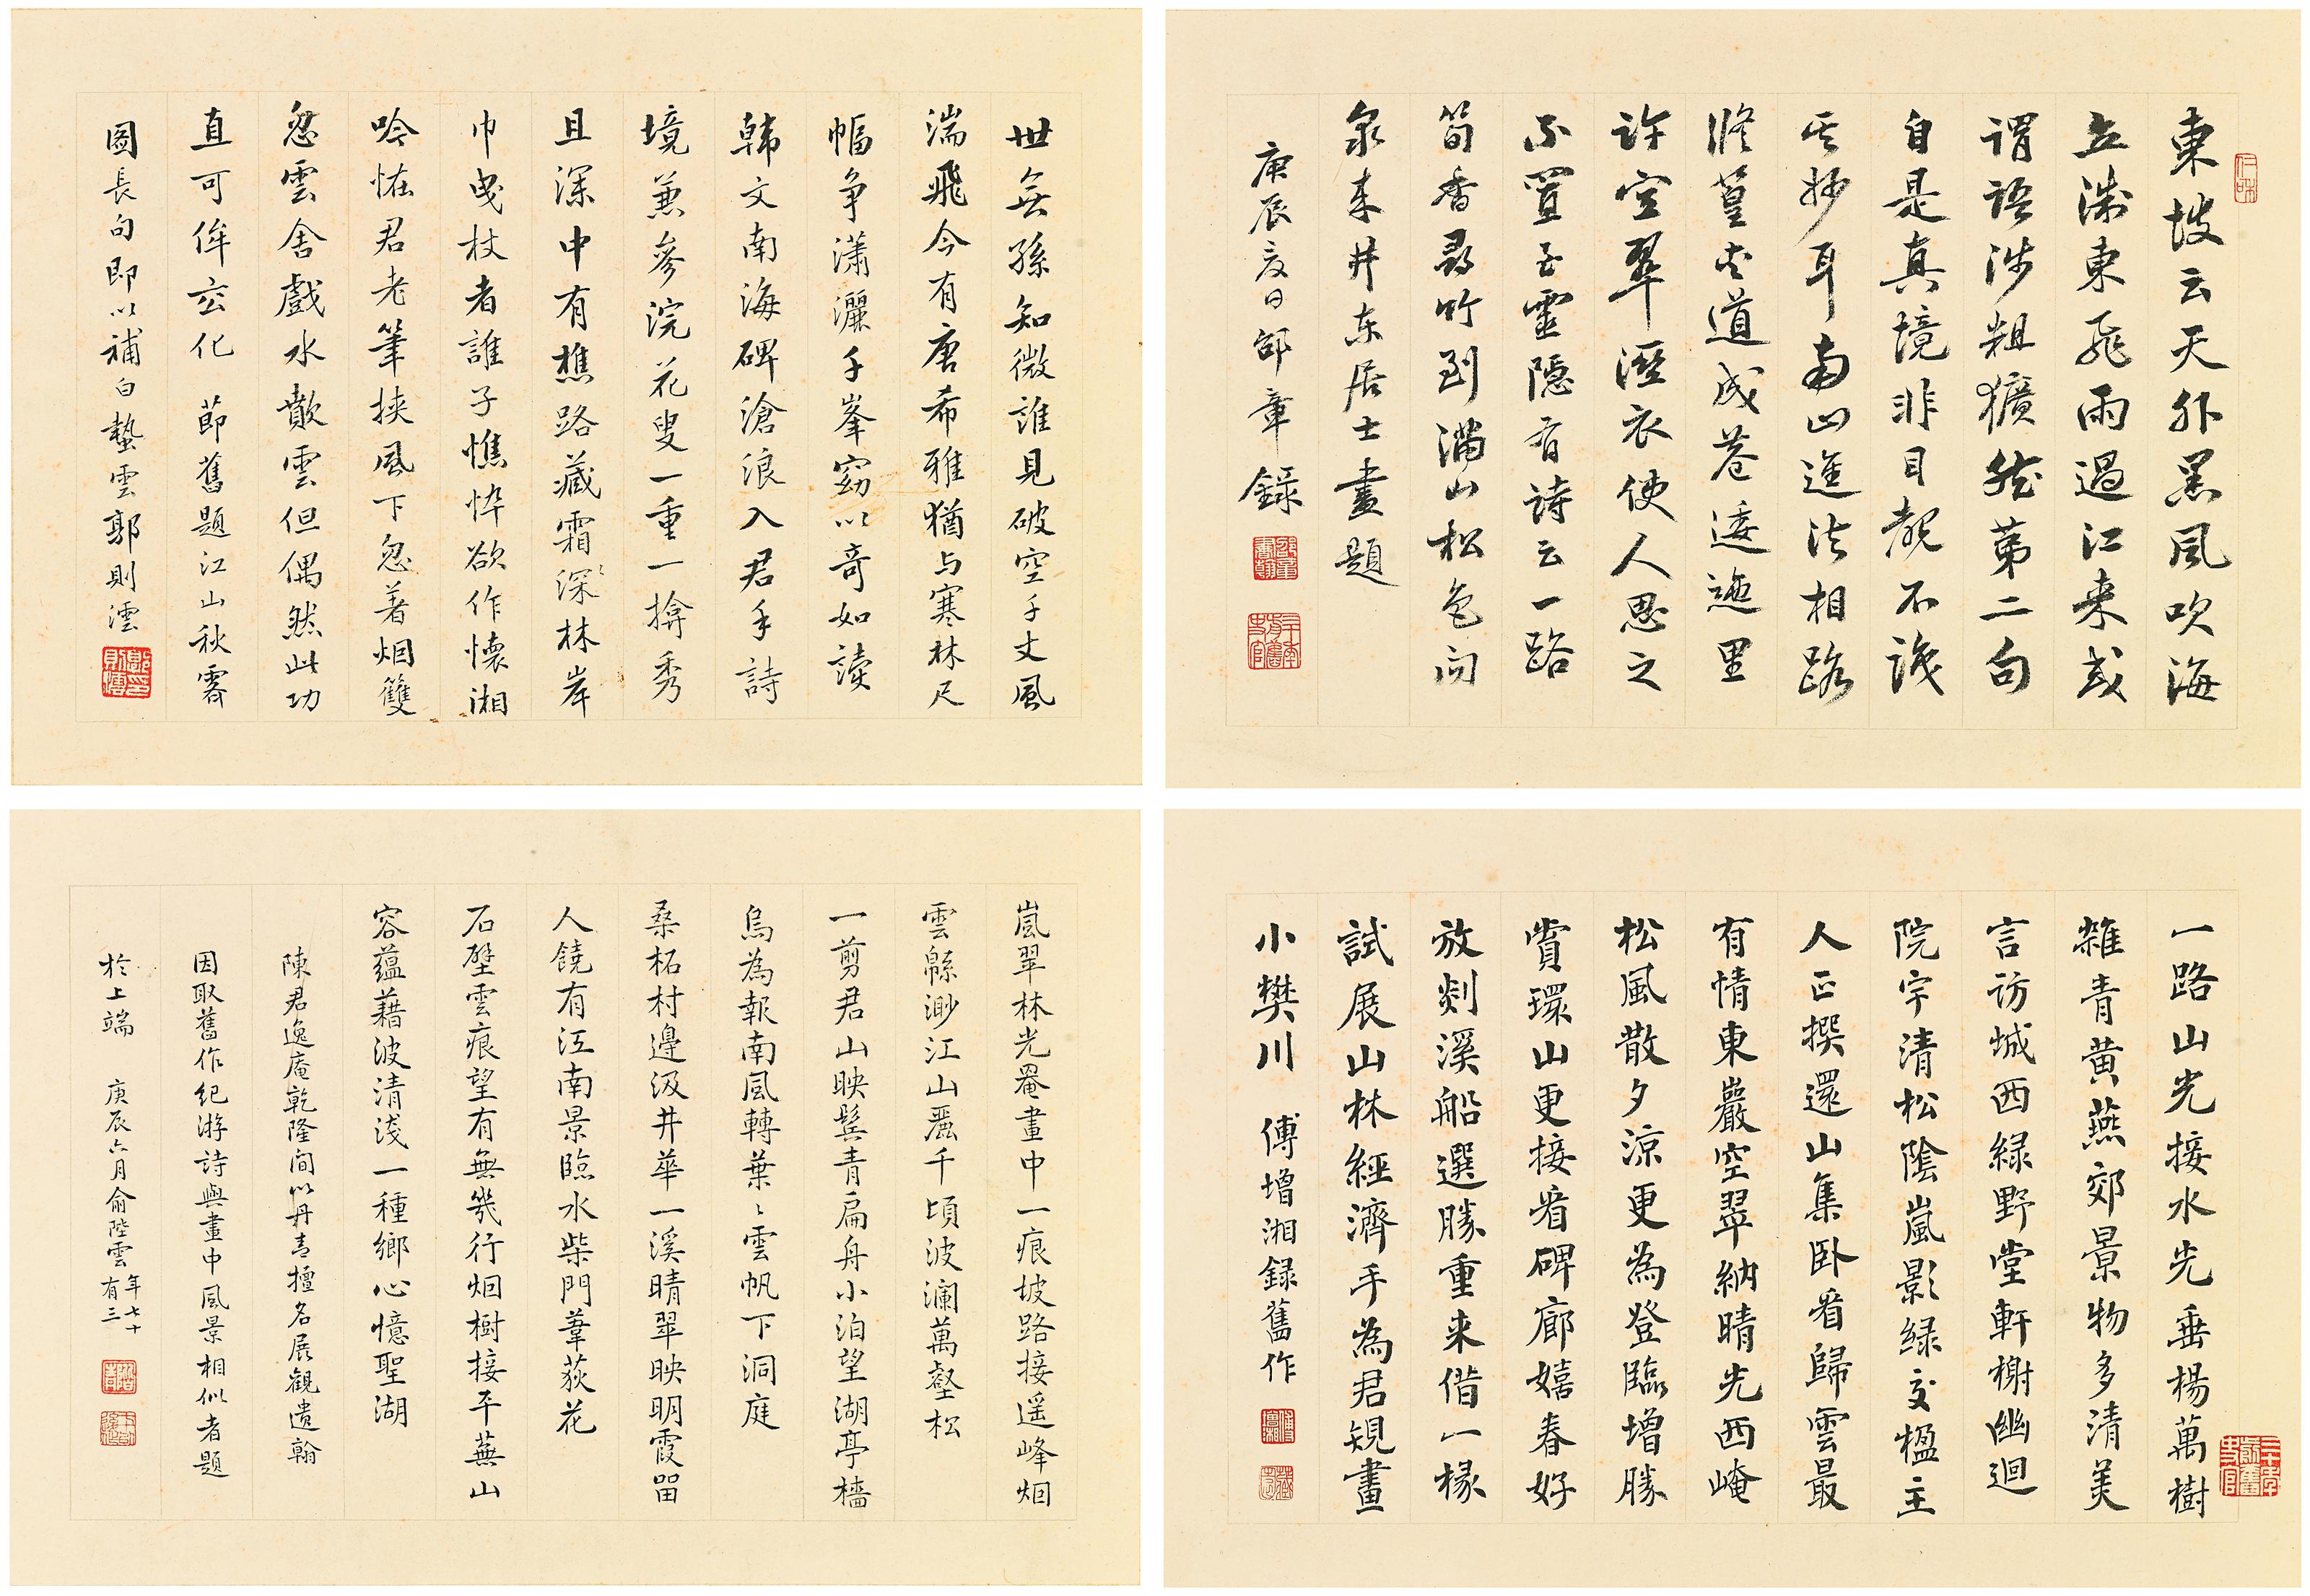 東坡云天外黑風吹海
立浙東飛雨過江来或
謂語涉粗獷然第二句
自是真境非目覩不識
其妙耳南山進法相路
修篁夾道成巷逶迤里
許空翠溼衣使人思之
不置至靈隱有詩云一路
筍香尋竹到满山松色向
泉来井东居士畫題
庚辰夏日邵章録
世無孫知微誰見破空千丈風
湍飛今有唐希雅猶与寒林尺
幅争瀟灑千峯窈以奇如讀
韩文南海碑滄浪入君手詩
境兼參浣花叟一重一揜秀
且深中有樵路藏霜深林岸
巾曳杖者誰子憔悴欲作懷湘
吟恠君老筆挟風下忽著烟雙
忽雲舍戲水歕雲但偶然此功
直可侔玄化 節舊題江山秋霽
圖長句即以補白蟄雲郭則澐
郭則澐印
一路山光接水光垂楊萬樹
雜青黄燕郊景物多清美
言訪城西緑野堂軒榭幽迴
院宇清松陰嵐影緑交楹主
人正撰還山集卧看歸雲最
有情東巖空翠納晴光西崦
松風散夕涼更為登臨增勝
賞環山更接看碑廊嬉春好
放剡溪船選勝重来借一椽
試展山林經濟手為君規畫
小樊川 傅增湘録舊作
嵐翠林光罨畫中一痕坡路接遥峰烟
雲緜渺江山麗千頃波瀾萬壑松
一剪君山映鬓青扁舟小泊望湖亭檣
烏為報南風轉葉葉雲帆下洞庭
桑柘村邊汲井華一溪晴翠映明霞留
人饒有江南景臨水柴門葦荻花
石壁雲痕望有無幾行烟樹接平蕪山
容蕴藉波清淺一種鄉心憶聖湖
陳君逸庵乾隆間以丹青擅名展觀遺翰
因取舊作紀游詩與畫中風景相似者題
於上端 庚辰六月俞陛雲年七十有三